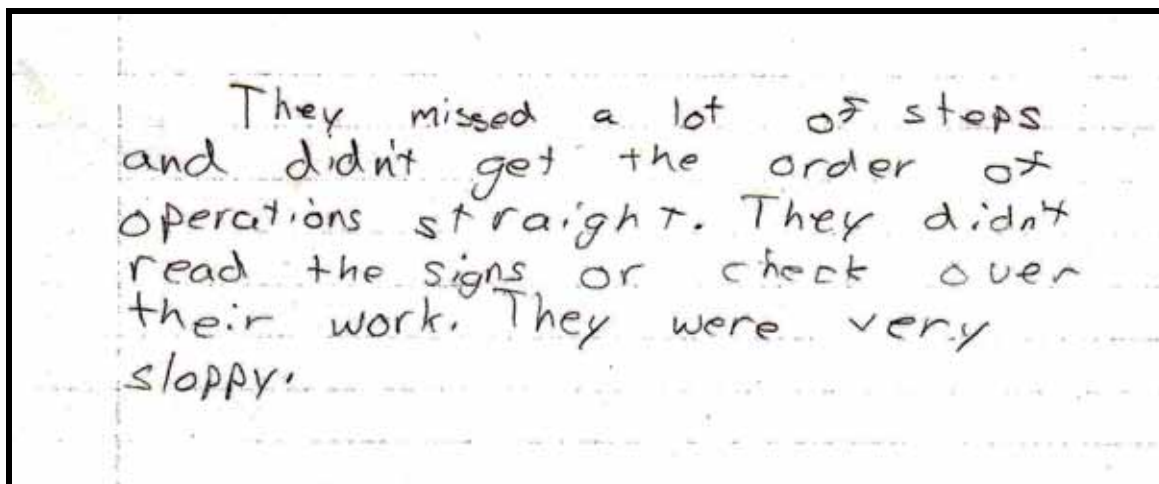 They missed a lot of steps
and didn't get the order of
operations straight. They didn't
read the signs or check over
their work. They were very
sloppy.